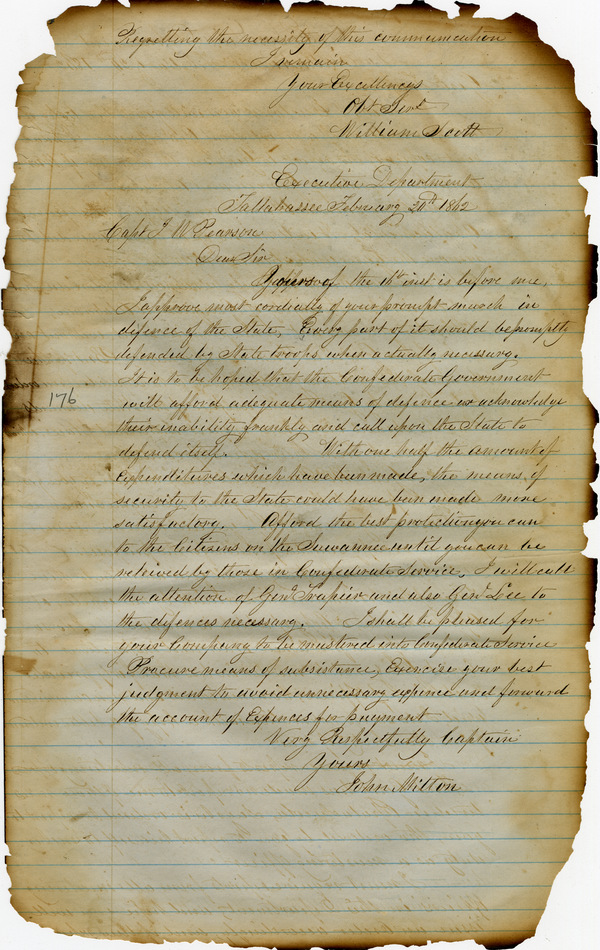 Regretting the necessity of this communication
I remain
Your Excellencys
Obt Servt
William Scott
Executive Department
Tallahassee February 20th 1862
Capt J W Pearson
Dear Sir
Yours of the 16th inst is before me,
I approve most cordially of your prompt march in
defence of the State, Every part of it should be promptly
defended by State troops when actually necessary.
It is to be hoped that the Confederate Government
will afford adequate means of defence or acknowledge
their inability frankly and call upon the State to
defend itself. With one half the amount of
Expenditures which have been made, the means of
security to the State could have been made more
satisfactory. Afford the best protection you can
to the Citizens on the Suwannee until you can be
relieved by those in Confederate Service, I will call
the attention of Genl Trapier and also Genl Lee to
the defences necessary. I shall be pleased for
your Company to be mustered into Confederate Service
Procure means of subsistance, Exercise your best
judgment to avoid unnecessary expence and forward
the account of Expences for payment
Very Respectfully Captain
Yours
John Milton
176